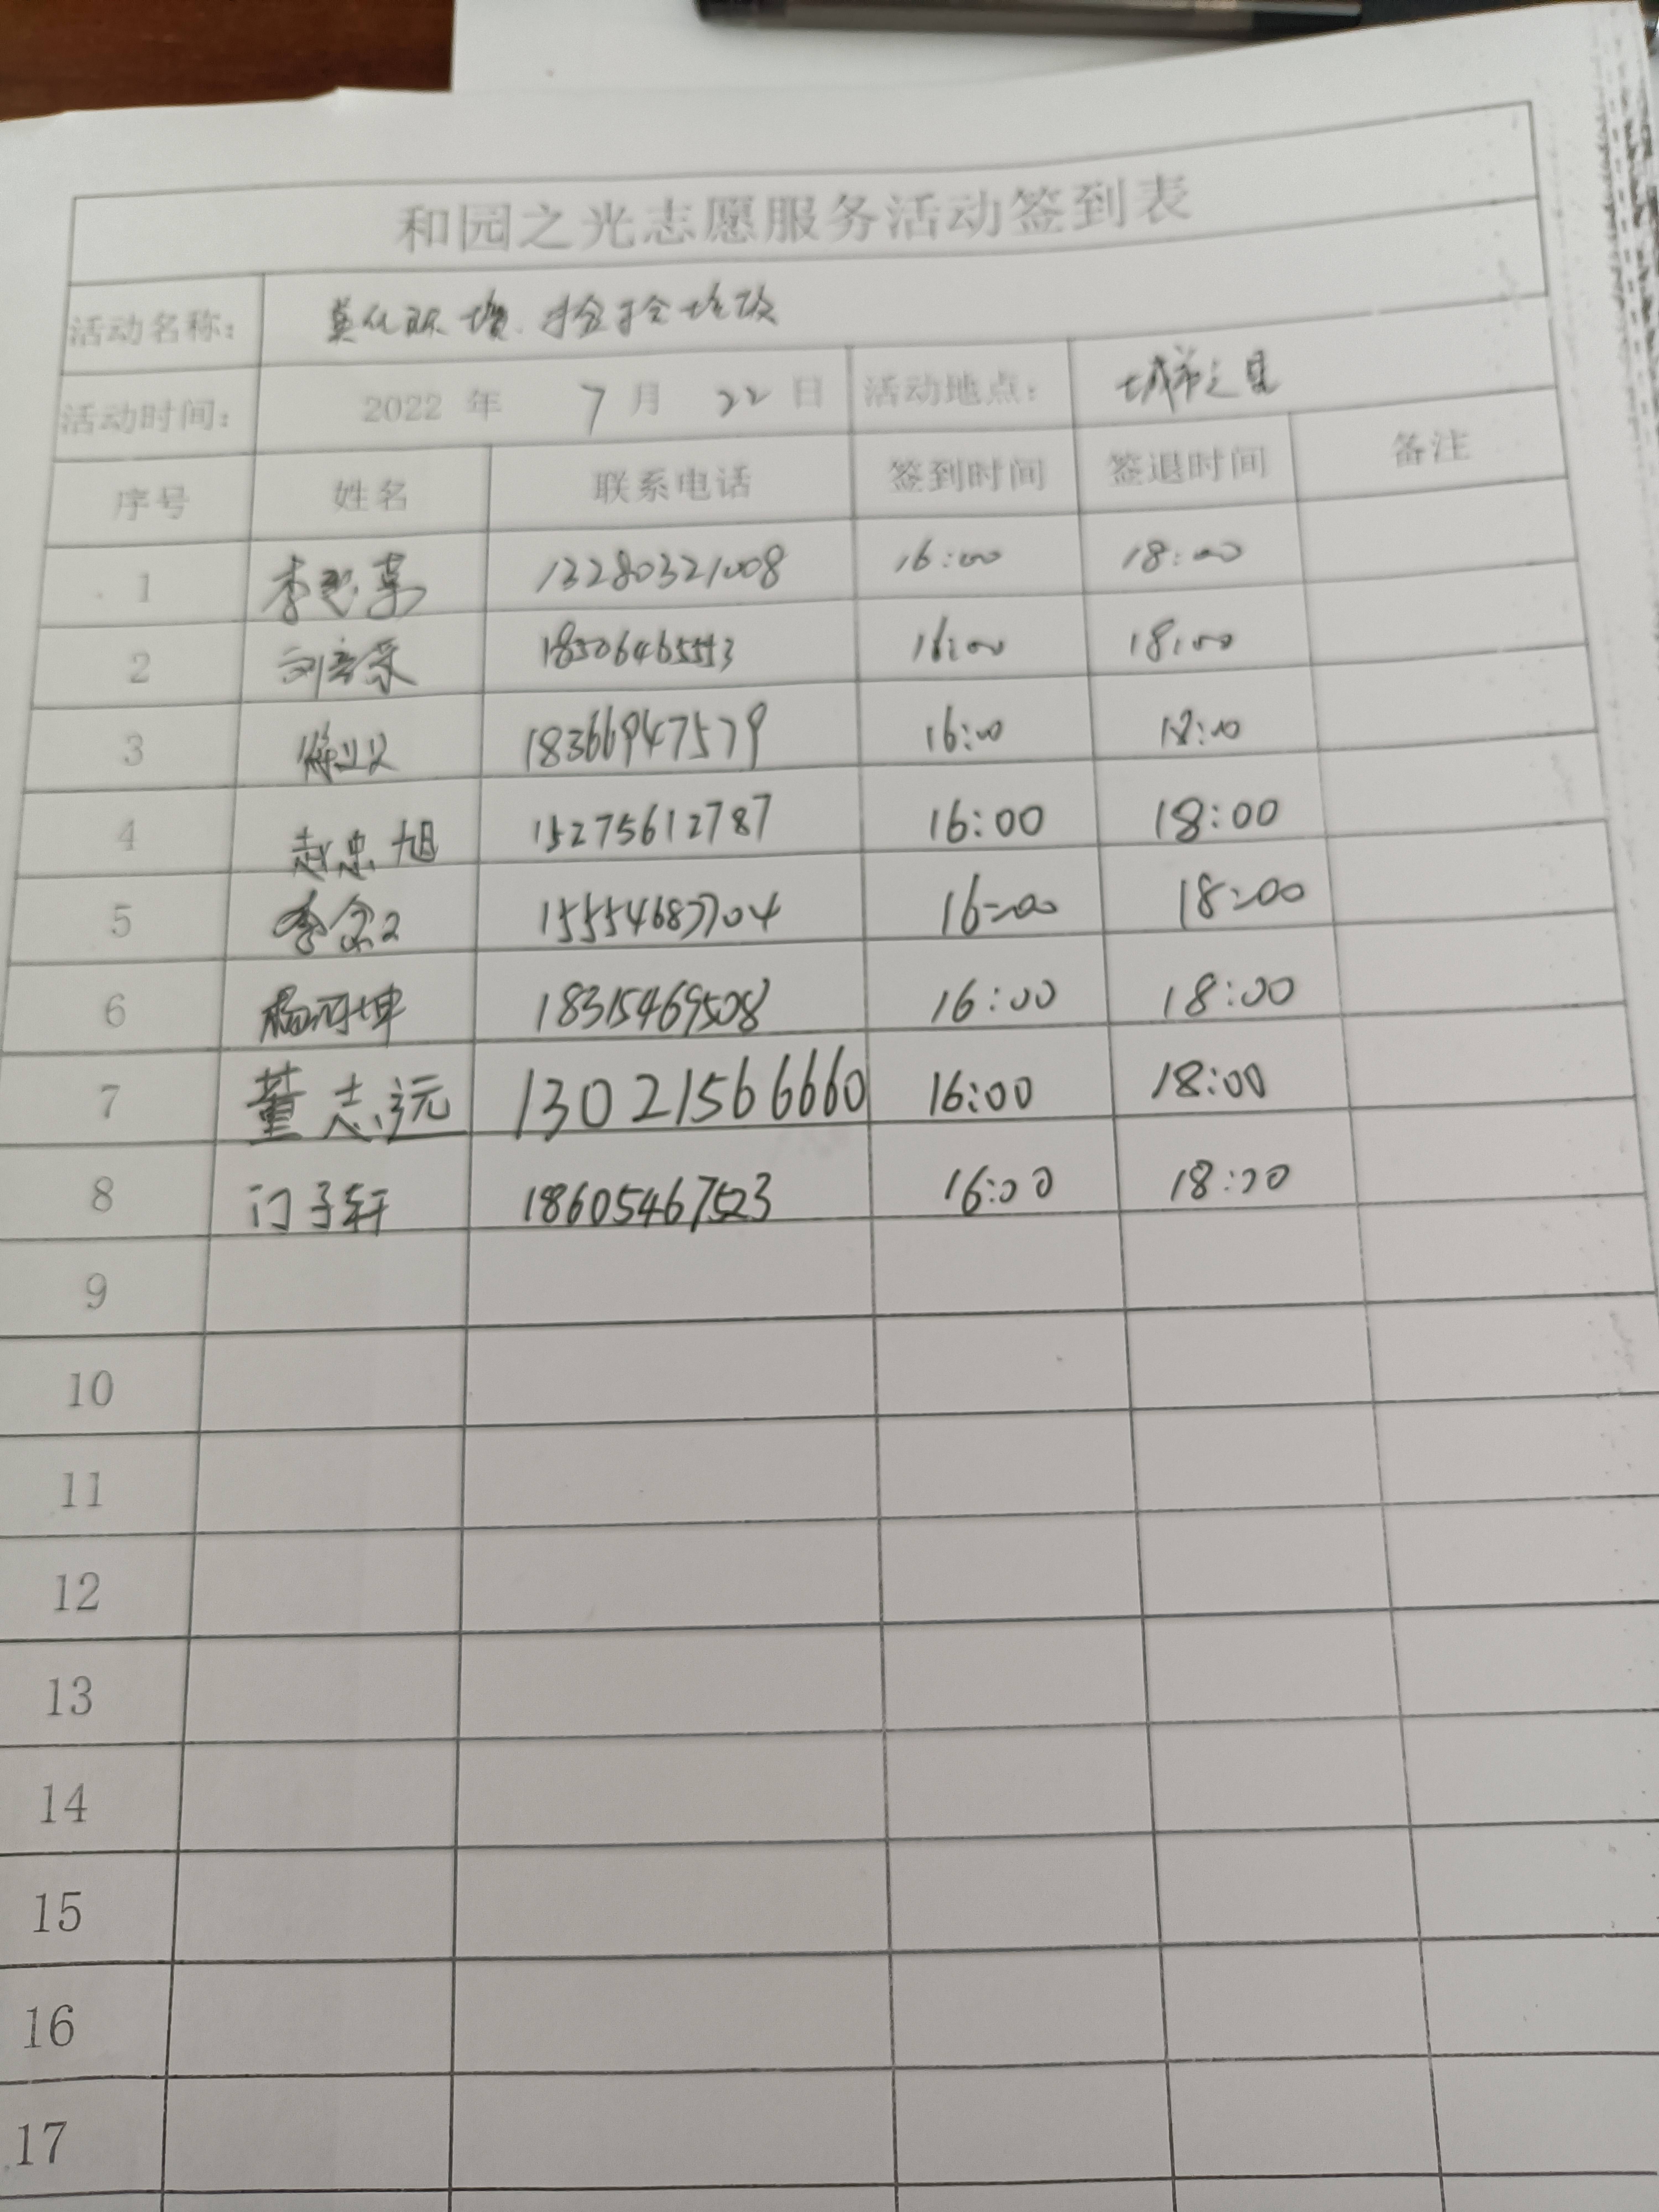 和园之光志愿服务活动签到表
活动名称: 美化环境 捡拾垃圾
活动时间: 2022 年 7 月 22 日 活动地点: 城市之星
序号 姓名 联系电话 签到时间 签退时间 备注
1 李 13280321008 16:00 18:00
2 刘 16:00 18:00
3 18366947579 16:00 18:00
4 赵忠旭 15275612787 16:00 18:00
5 李 16:00 18:00
6 杨河坤 18315469508 16:00 18:00
7 董志远 13021566660 16:00 18:00
8 门子轩 18605467523 16:00 18:00
9
10
11
12
13
14
15
16
17